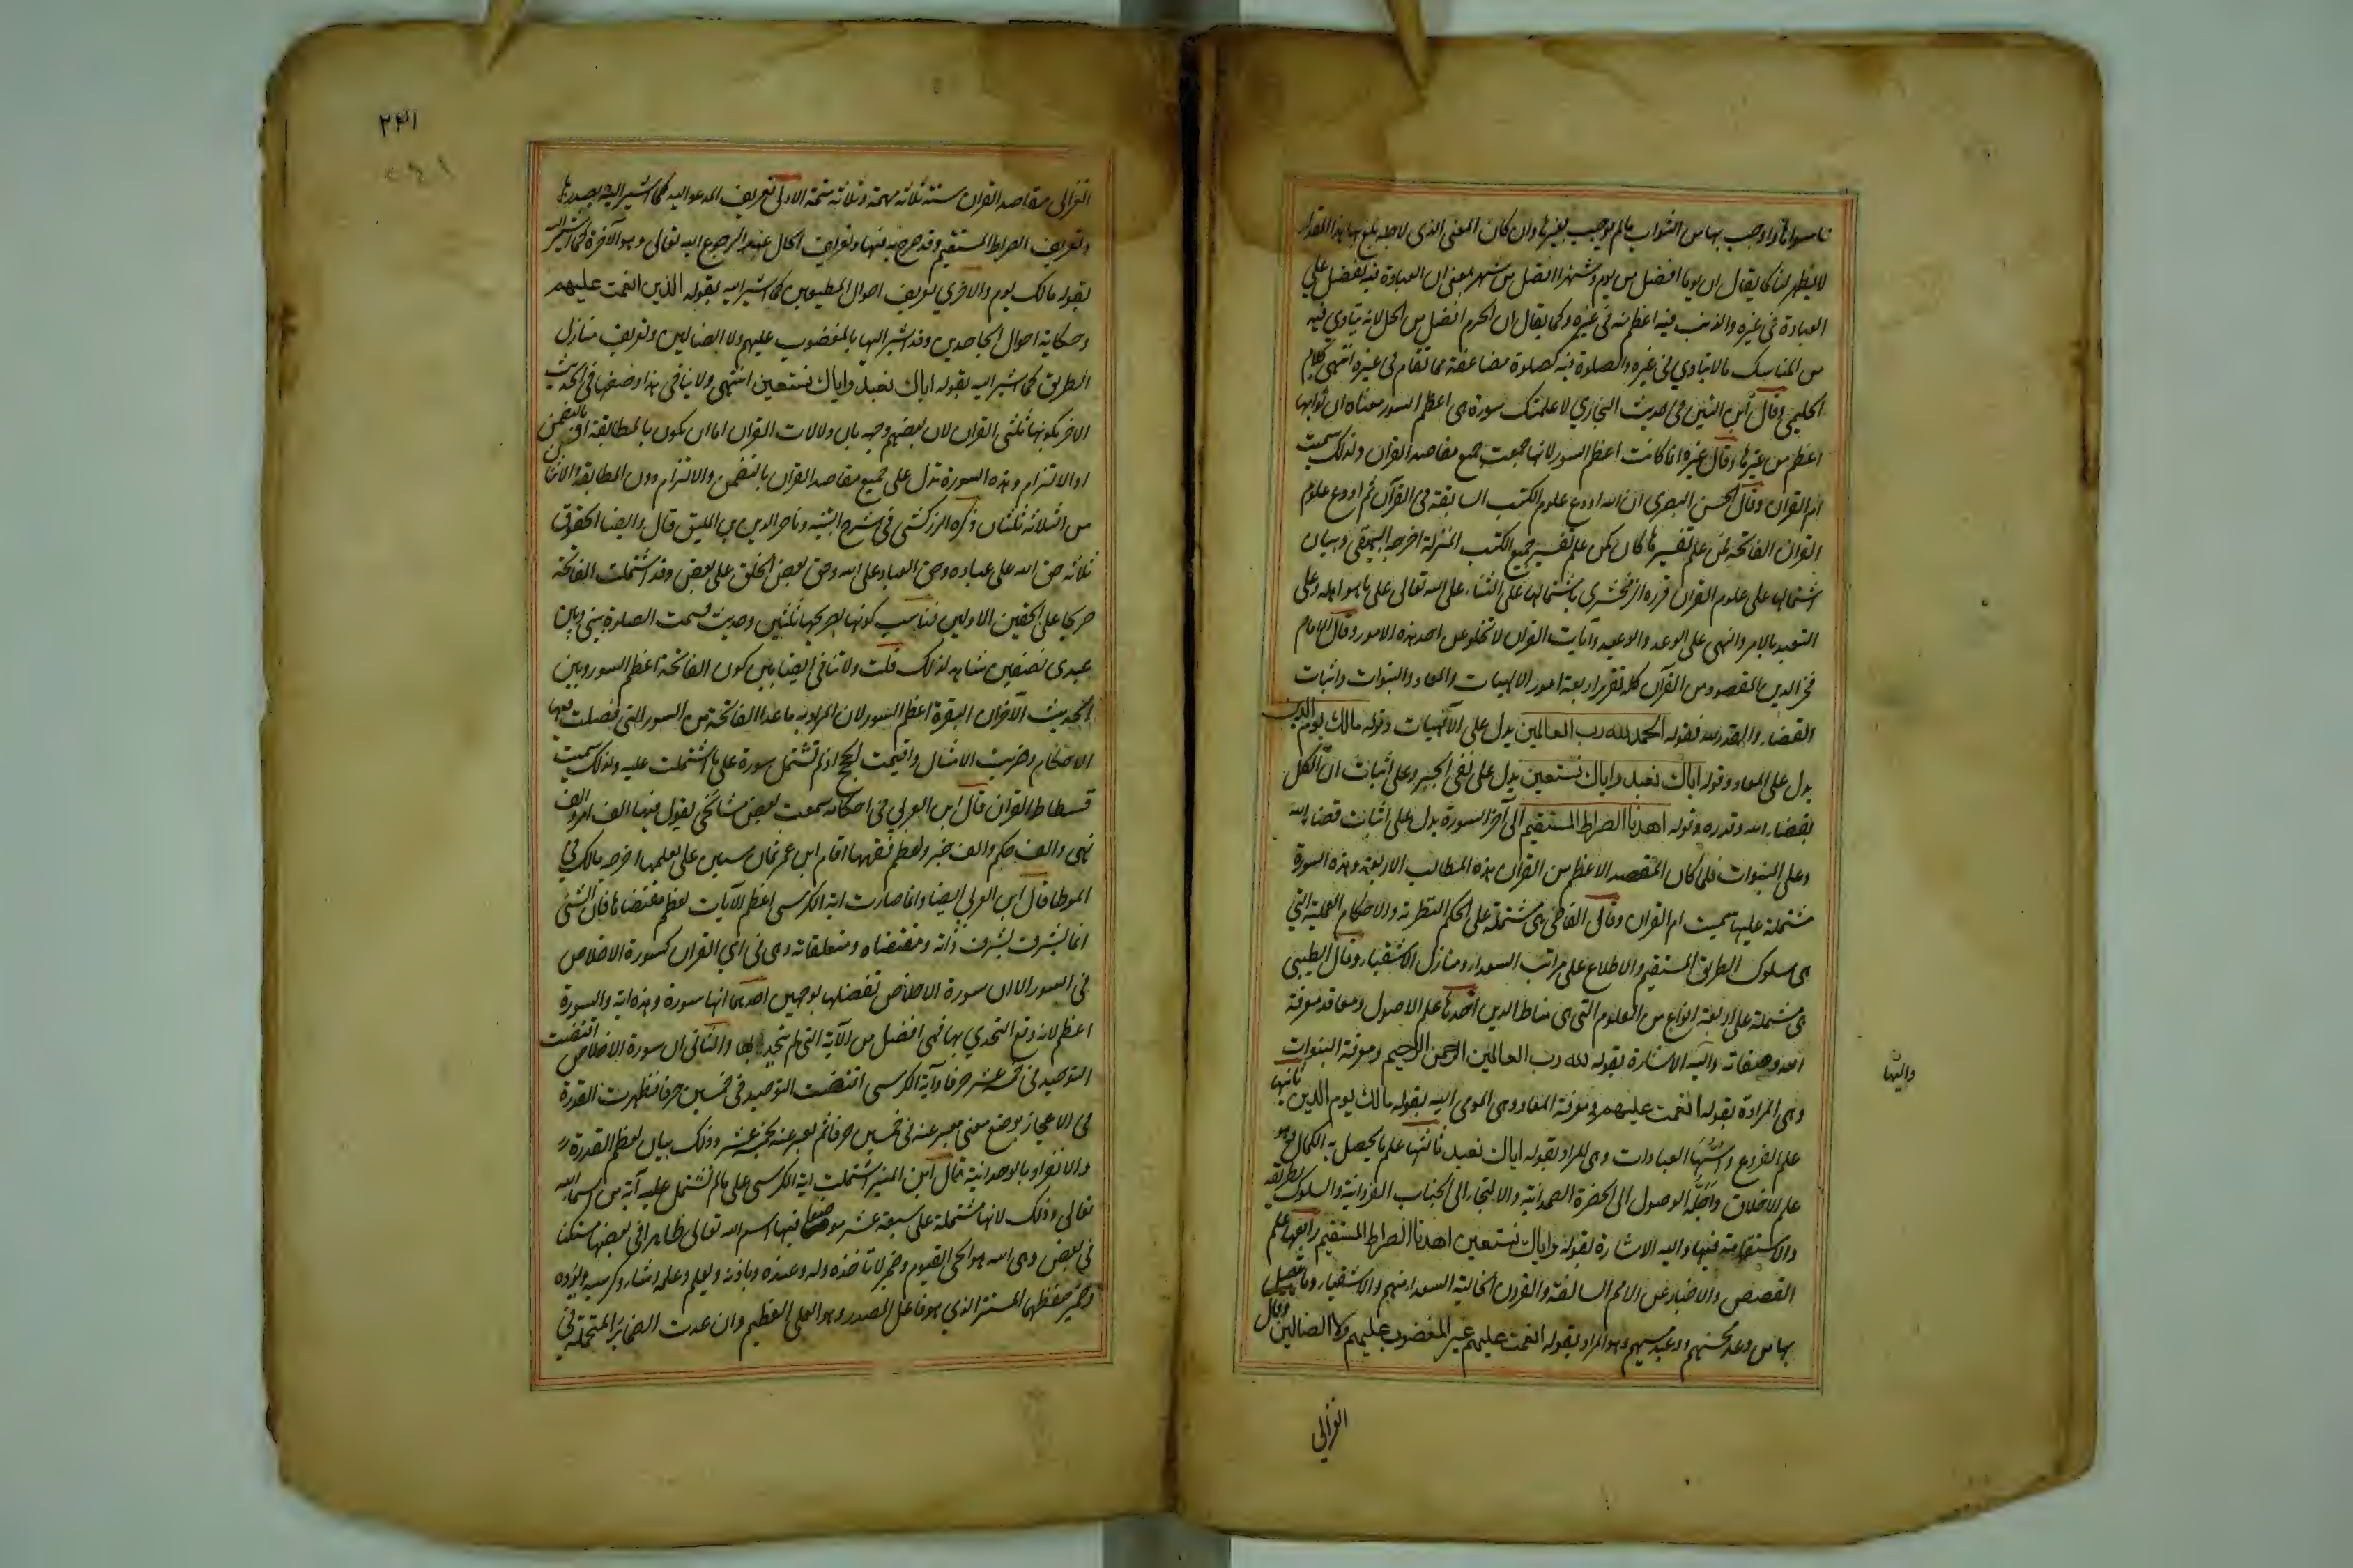 ما سواها واوجب بها من الثواب ما لم يوجب بغيرها وان كان المعنى الذى لاجله بلغ بها هذا المقدار
لا يظهر لنا كما يقال ان يوما افضل من يوم وشهرا افضل من شهر بمعنى ان العبادة فيه تفضل على
العبادة فى غيره والذنب فيه اعظم منه فى غيره وكما يقال ان الحرم افضل من الحل لانه يتادى فيه
من المناسك ما لا يتادى فى غيره والصلوة فيه كصلوة مضاعفة مما تقام فى غيره انتهى كلام
الحليمى وقال ابن التين فى حديث البخارى لاعلمنك سورة هى اعظم السور معناه ان ثوابها
اعظم من غيرها وقال غيره انما كانت اعظم السور لانها جمعت جميع مقاصد القران ولذلك سميت
ام القران وقال الحسن البصرى ان الله اودع علوم الكتب السابقة فى القرآن ثم اودع علوم
القران الفاتحة فمن علم تفسيرها كان كمن علم تفسير جميع الكتب المنزلة اخرجه البيهقى وبيان
اشتمالها على علوم القران قرره الزمخشرى باشتمالها على الثناء على الله تعالى على ما هو اهله وعلى
التعبد بالامر والنهى على الوعد والوعيد وآيات القران لا تخلو عن احد هذه الامور وقال الامام
فخر الدين المقصود من القرآن كله تقرير اربعة امور الالهيات والمعاد والنبوات واثبات
القضاء والقدر لله فقوله الحمد لله رب العالمين يدل على الالهيات وقوله مالك يوم الدين
يدل على المعاد وقوله اياك نعبد واياك نستعين يدل على نفى الجبر وعلى اثبات ان الكل
بقضاء الله وقدره وقوله اهدنا الصراط المستقيم الى آخر السورة يدل على اثبات قضاء الله
وعلى النبوات فلما كان المقصد الاعظم من القران هذه المطالب الاربعة وهذه السورة
مشتملة عليها سميت ام القران وقال القاضى هى مشتملة على الحكم النظرية والاحكام العملية التى
هى سلوك الطريق المستقيم والاطلاع على مراتب السعداء ومنازل الاشقياء وقال الطيبى
هى مشتملة على اربعة انواع من العلوم التى هى مناط الدين احدها علم الاصول ومعاقده معرفة
الله وصفاته واليه الاشارة بقوله لله رب العالمين الرحمن الرحيم ومعرفة النبوات
وهى المرادة بقوله انعمت عليهم ومعرفة المعاد وهى المومى اليه بقوله مالك يوم الدين ثانيها
علم الفروع واسّها العبادات وهى المراد بقوله اياك نعبد ثالثها علم ما يحصل به الكمال وهو
علم الاخلاق واجلّه الوصول الى الحضرة الصمدانية والالتجاء الى الجناب الفردانية والسلوك لطريقه
والاستقامة فيها واليه الاشارة بقوله واياك نستعين اهدنا الصراط المستقيم رابعها علم
القصص والاخبار عن الامم السالفة والقرون الخالية السعداء منهم والاشقياء وما يتصل
بها من وعد محسنهم ووعيد مسيئهم وهو المراد بقوله انعمت عليهم غير المغضوب عليهم ولا الضالين وقال
الغزالى
واليها
۲۴۱
الغزالى مقاصد القران ستة ثلاثة مهمة وثلاثة متمة الاولى تعريف المدعو اليه كما اشير اليه بصدرها
وتعريف الصراط المستقيم وقد صرح به فيها وتعريف الحال عند الرجوع اليه تعالى وهو الآخرة كما اشير اليه
بقوله مالك يوم والاخرى تعريف احوال المطيعين كما اشير اليه بقوله الذين انعمت عليهم
وحكاية احوال الجاحدين وقد اشير اليها بالمغضوب عليهم ولا الضالين وتعريف منازل
الطريق كما اشير اليه بقوله اياك نعبد واياك نستعين انتهى ولا ينافى هذا وصفها فى الحديث
الاخر بكونها ثلثى القران لان بعضهم وجهه بان دلالات القران اما ان يكون بالمطابقة او بالتضمن
او الالتزام وهذه السورة تدل على جميع مقاصد القران بالتضمن والالتزام دون المطابقة والاثنان
من الثلاثة ثلثان ذكره الزركشى فى شرح التنبيه وناصر الدين بن الميلق قال وايضا الحقوق
ثلاثة حق الله على عباده وحق العباد على الله وحق بعض الخلق على بعض وقد اشتملت الفاتحة
صريحا على الحقين الاولين فناسب كونها بصريحها ثلثين وحديث قسمت الصلوة بينى وبين
عبدى نصفين شاهد لذلك قلت ولا تنافى ايضا بين كون الفاتحة اعظم السور وبين
الحديث الآخر ان البقرة اعظم السور لان المراد به ما عدا الفاتحة من السور التى فصلت فيها
الاحكام وضربت الامثال واقيمت الحجج اذ لم تشتمل سورة على ما اشتملت عليه ولذلك سميت
فسطاط القران قال ابن العربى فى احكامه سمعت بعض مشائخى يقول فيها الف امر والف
نهى والف حكم والف خبر ولعظم فقهها اقام ابن عمر ثمان سنين على تعلمها اخرجه مالك فى
الموطا قال ابن العربى ايضا وانما صارت اية الكرسى اعظم الآيات لعظم مقتضاها فان الشئ
انما يشرف بشرف ذاته ومقتضاه ومتعلقاته وهى فى آى القران كسورة الاخلاص
فى السور الا ان سورة الاخلاص تفضلها بوجهين احدهما انها سورة وهذه اية والسورة
اعظم لانه وقع التحدى بها فهى افضل من الآية التى لم يتحد بها والثانى ان سورة الاخلاص اقتضت
التوحيد فى خمسة عشر حرفا وآية الكرسى اقتضت التوحيد فى خمسين حرفا فظهرت القدرة
فى الاعجاز بوضع معنى معبر عنه فى خمسين حرفا ثم يعبر عنه بخمسة عشر وذلك بيان لعظم القدرة
والانفراد بالوحدانية قال ابن المنير اشتملت اية الكرسى على ما لم تشتمل عليه آية من اسماء الله
تعالى وذلك لانها مشتملة على سبعة عشر موضعا فيها اسم الله تعالى ظاهرا فى بعضها مستكنا
فى بعض وهى الله هو الحى القيوم وضمير لا تاخذه وله وعنده وباذنه ويعلم وعلمه وشاء وكرسيه ويؤده
وضمير حفظهما المستتر الذى هو فاعل المصدر وهو العلى العظيم وان عدت الضمائر المتحملة فى